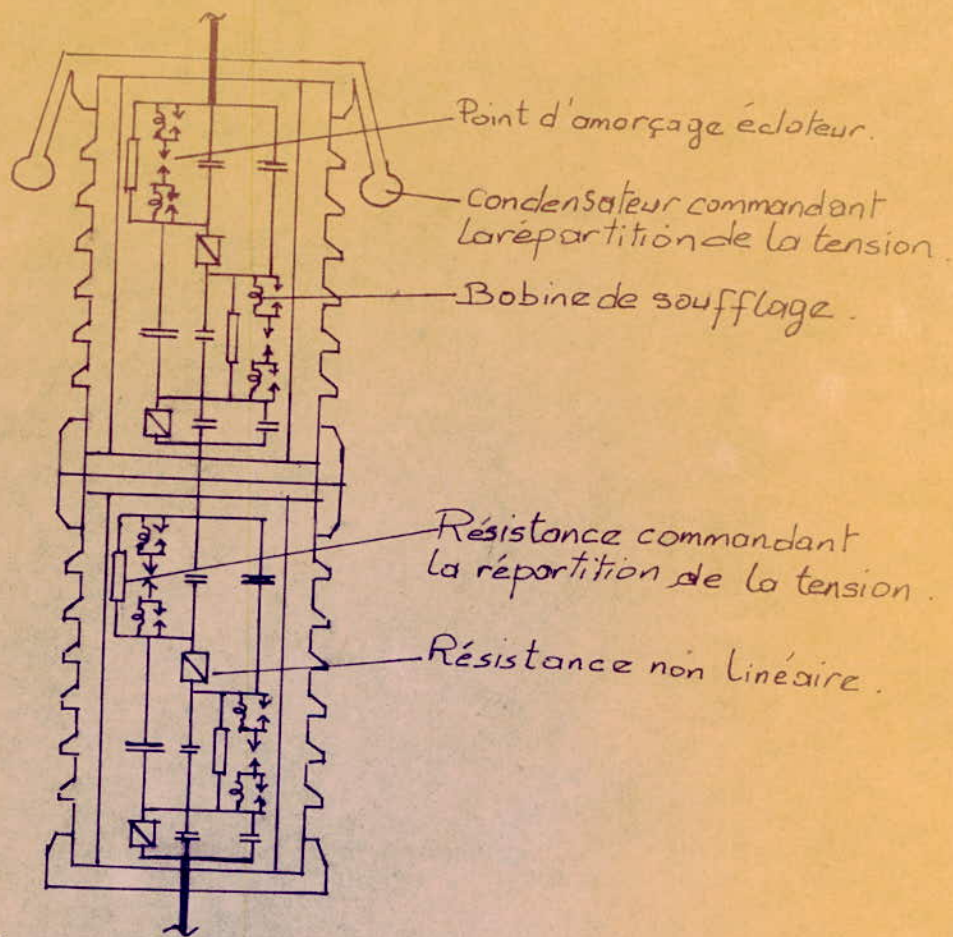 Point d'amorçage éclateur.
Condensateur commandant
la répartition de la tension.
Bobine de soufflage.
Résistance commandant
la répartition de la tension.
Résistance non linéaire.